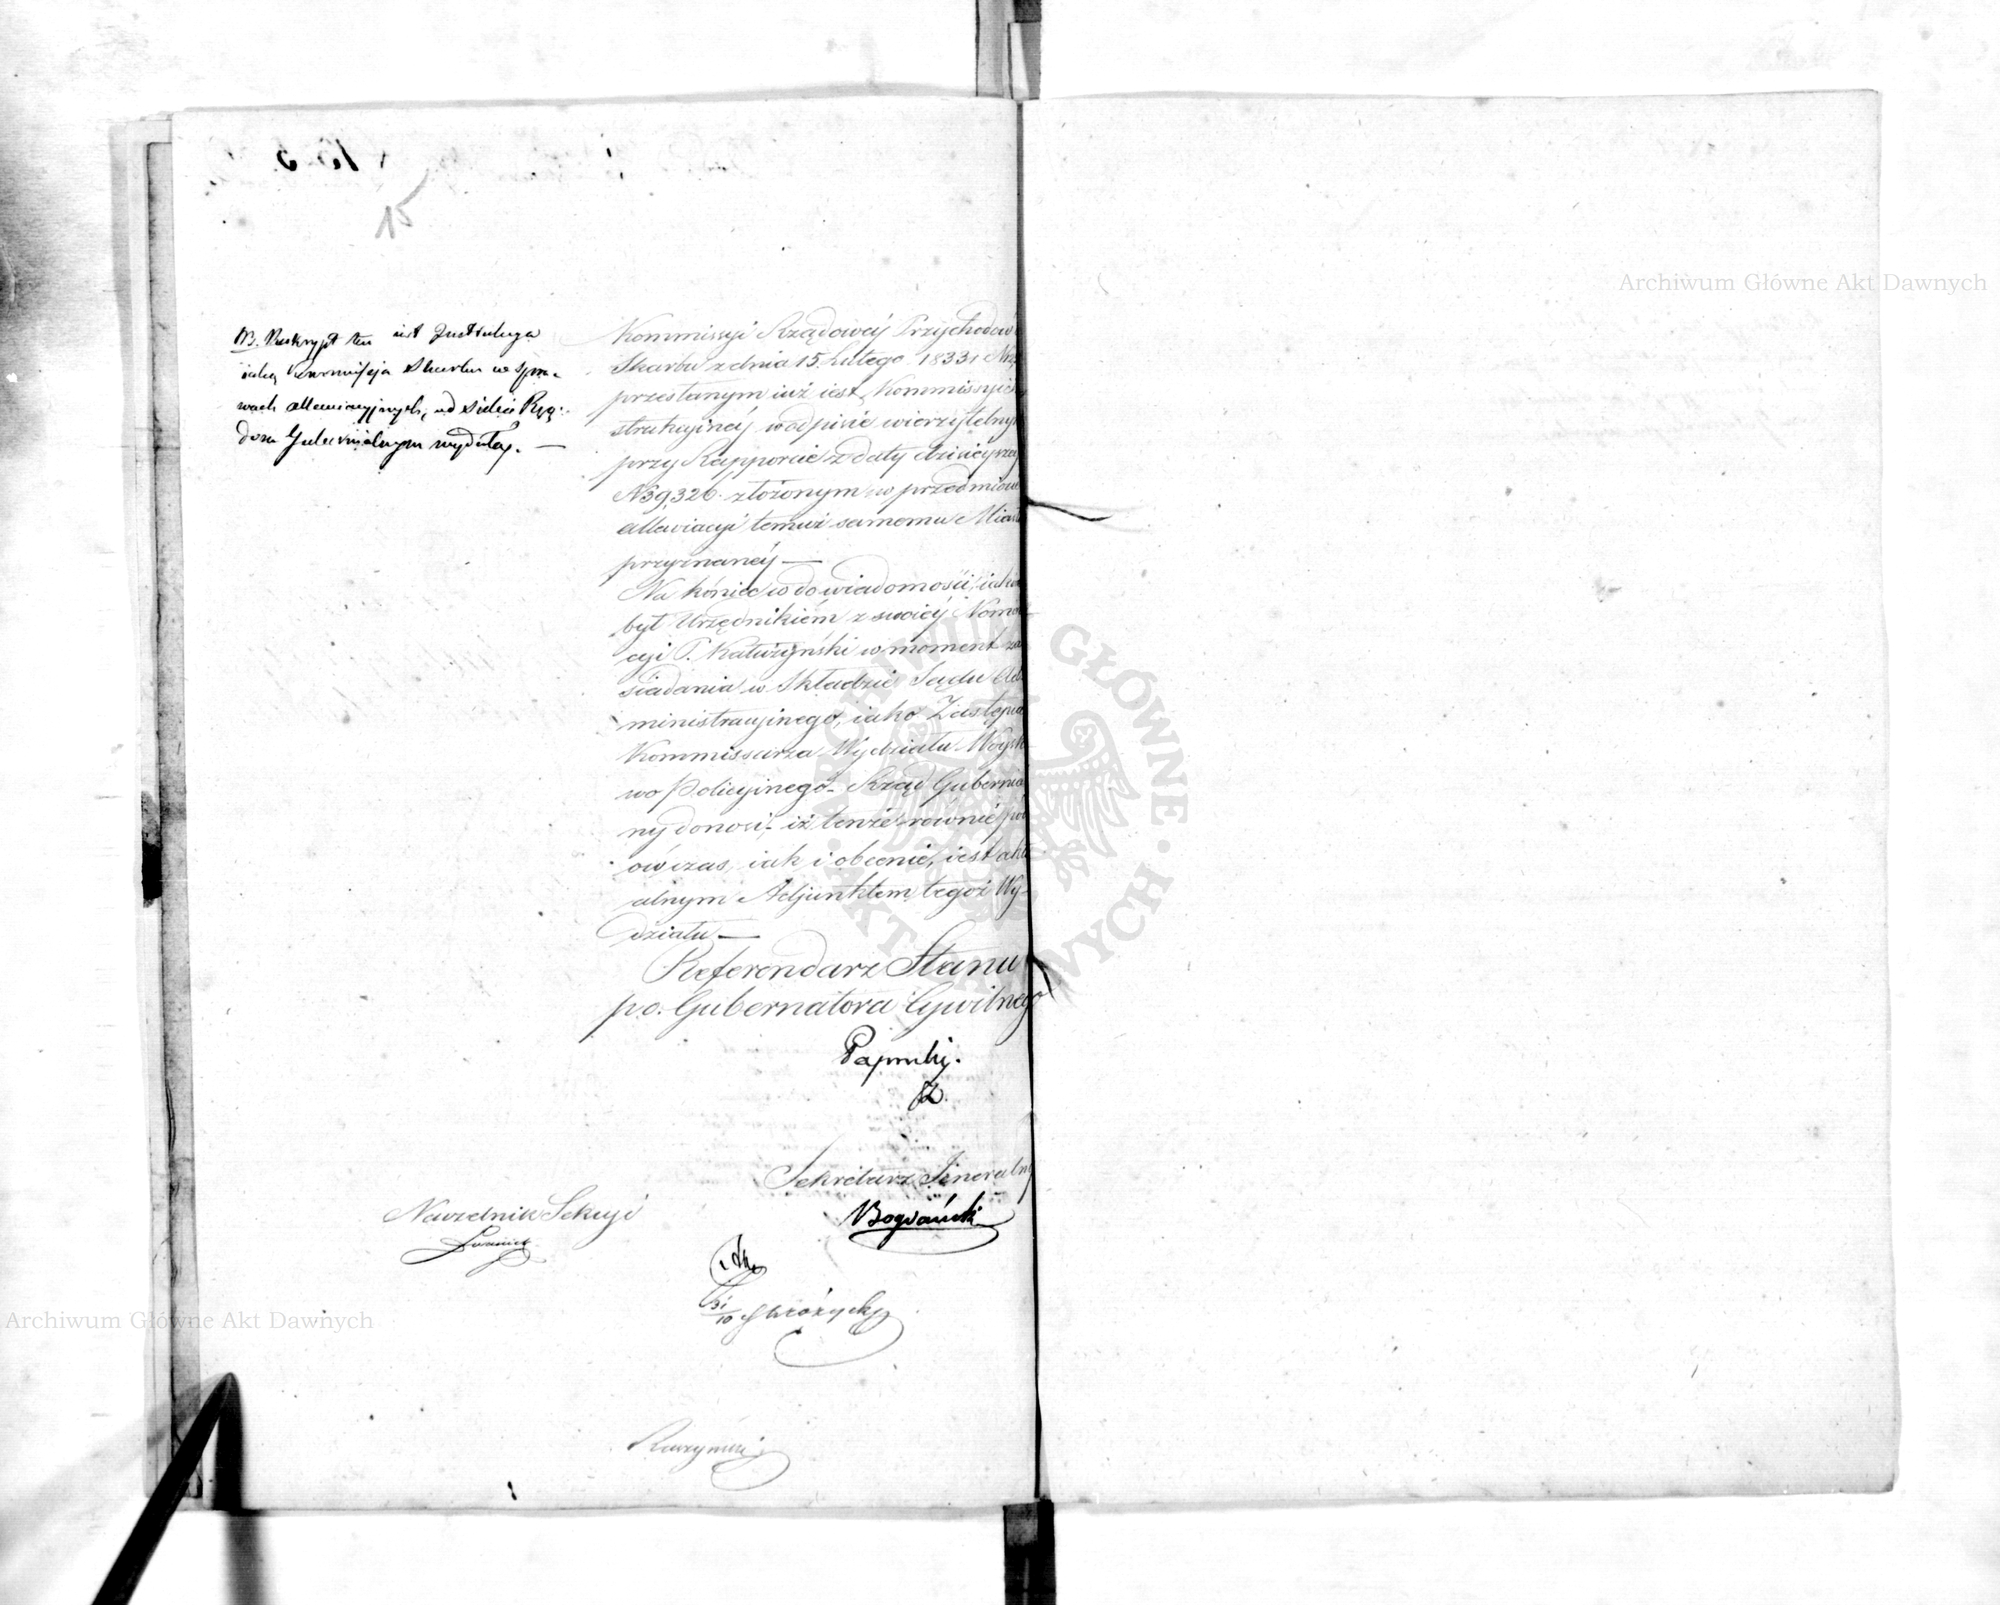 15
NB. Reskrypt ten iest Instrukcyą
iaką Kommissya Skarbu w spra-
wach allewiacyjnych, od siebie Rzą-
dom Gubernialnym wydała. —
Kommissyi Rządowéy Przychodów
Skarbu z dnia 15. Lutego 1833 r. N
przesłanym iuż iest Kommissyi
strukcyinéy w odpisie wierzytelnym
przy Rapporcie z daty dzisieyszey
N 39,326. złożonym w przedmiocie
allewiacyi temuż samemu Miastu
przyznanéy —
Na koniec co do wiadomości, iakim
był Urzędnikiém z swoiéy Nomina
cyi P. Kałużyński w moment za
siadania w Składzie Sądu Ad
ministracyinego, iako Zastępca
Kommissarza Wydziału Woysko
wo Policyinego - Rząd Gubernial
ny donosi, iż tenże równie pod
ówczas, iak i obecnie, iest aktu
alnym Adjunktem tegoż Wy-
działu —
Referendarz Stanu
p.o. Gubernatora Cywilnego
Sekretarz Jeneralny
Bogdański
Naczelnik Sekcyi
31/10
Archiwum Główne Akt Dawnych
Archiwum Główne Akt Dawnych
ARCHIWUM GŁÓWNE AKT DAWNYCH